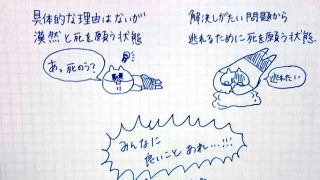 具体的な理由はないが
漠然と死を願う状態
解決しがたい問題から
逃れるために死を願う状態
あっ、死のう?
逃れたい
みんなに
良いことあれ…!!!